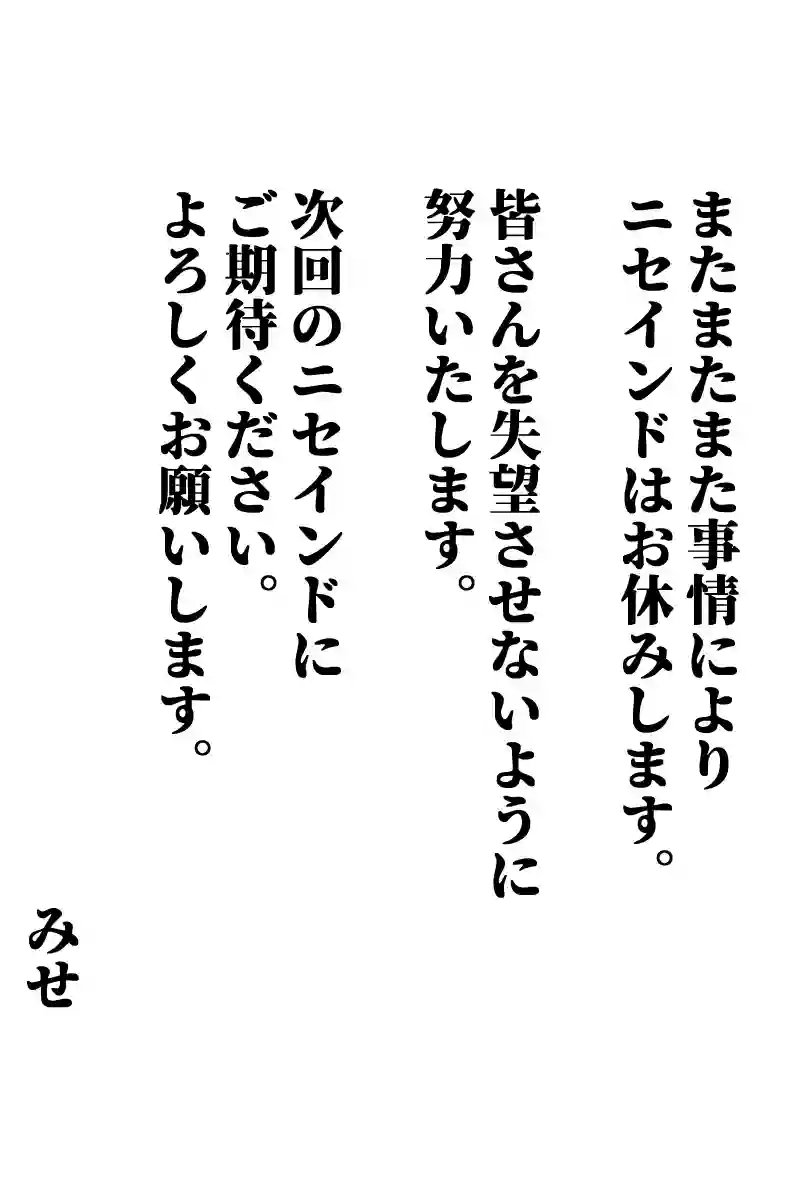 またまたまた事情により
ニセインドはお休みします。
皆さんを失望させないように
努力いたします。
次回のニセインドに
ご期待ください。
よろしくお願いします。
みせ